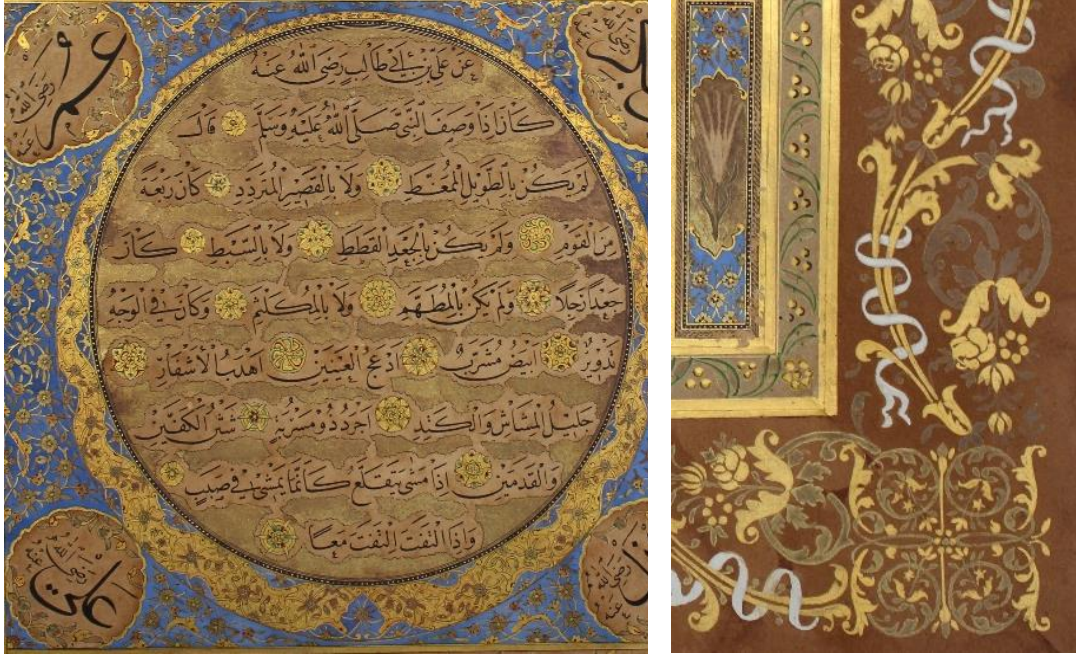 عمر
رضي الله عنه
عن علي بن ابي طالب رضي الله عنه
كان اذا وصف النبي صلى الله عليه وسلم قال
لم يكن بالطويل الممغط ولا بالقصير المتردد كان ربعة
من القوم ولم يكن بالجعد القطط ولا بالسبط كان
جعدا رجلا ولم يكن بالمطهم ولا بالمكلثم وكان في الوجه
تدوير ابيض مشرب ادعج العينين اهدب الاشفار
جليل المشاش والكتد اجرد ذو مسربة شثن الكفين
والقدمين اذا مشى يتقلع كانما يمشي في صبب
واذا التفت التفت معا
علي
رضي الله عنه
رضي الله عنه